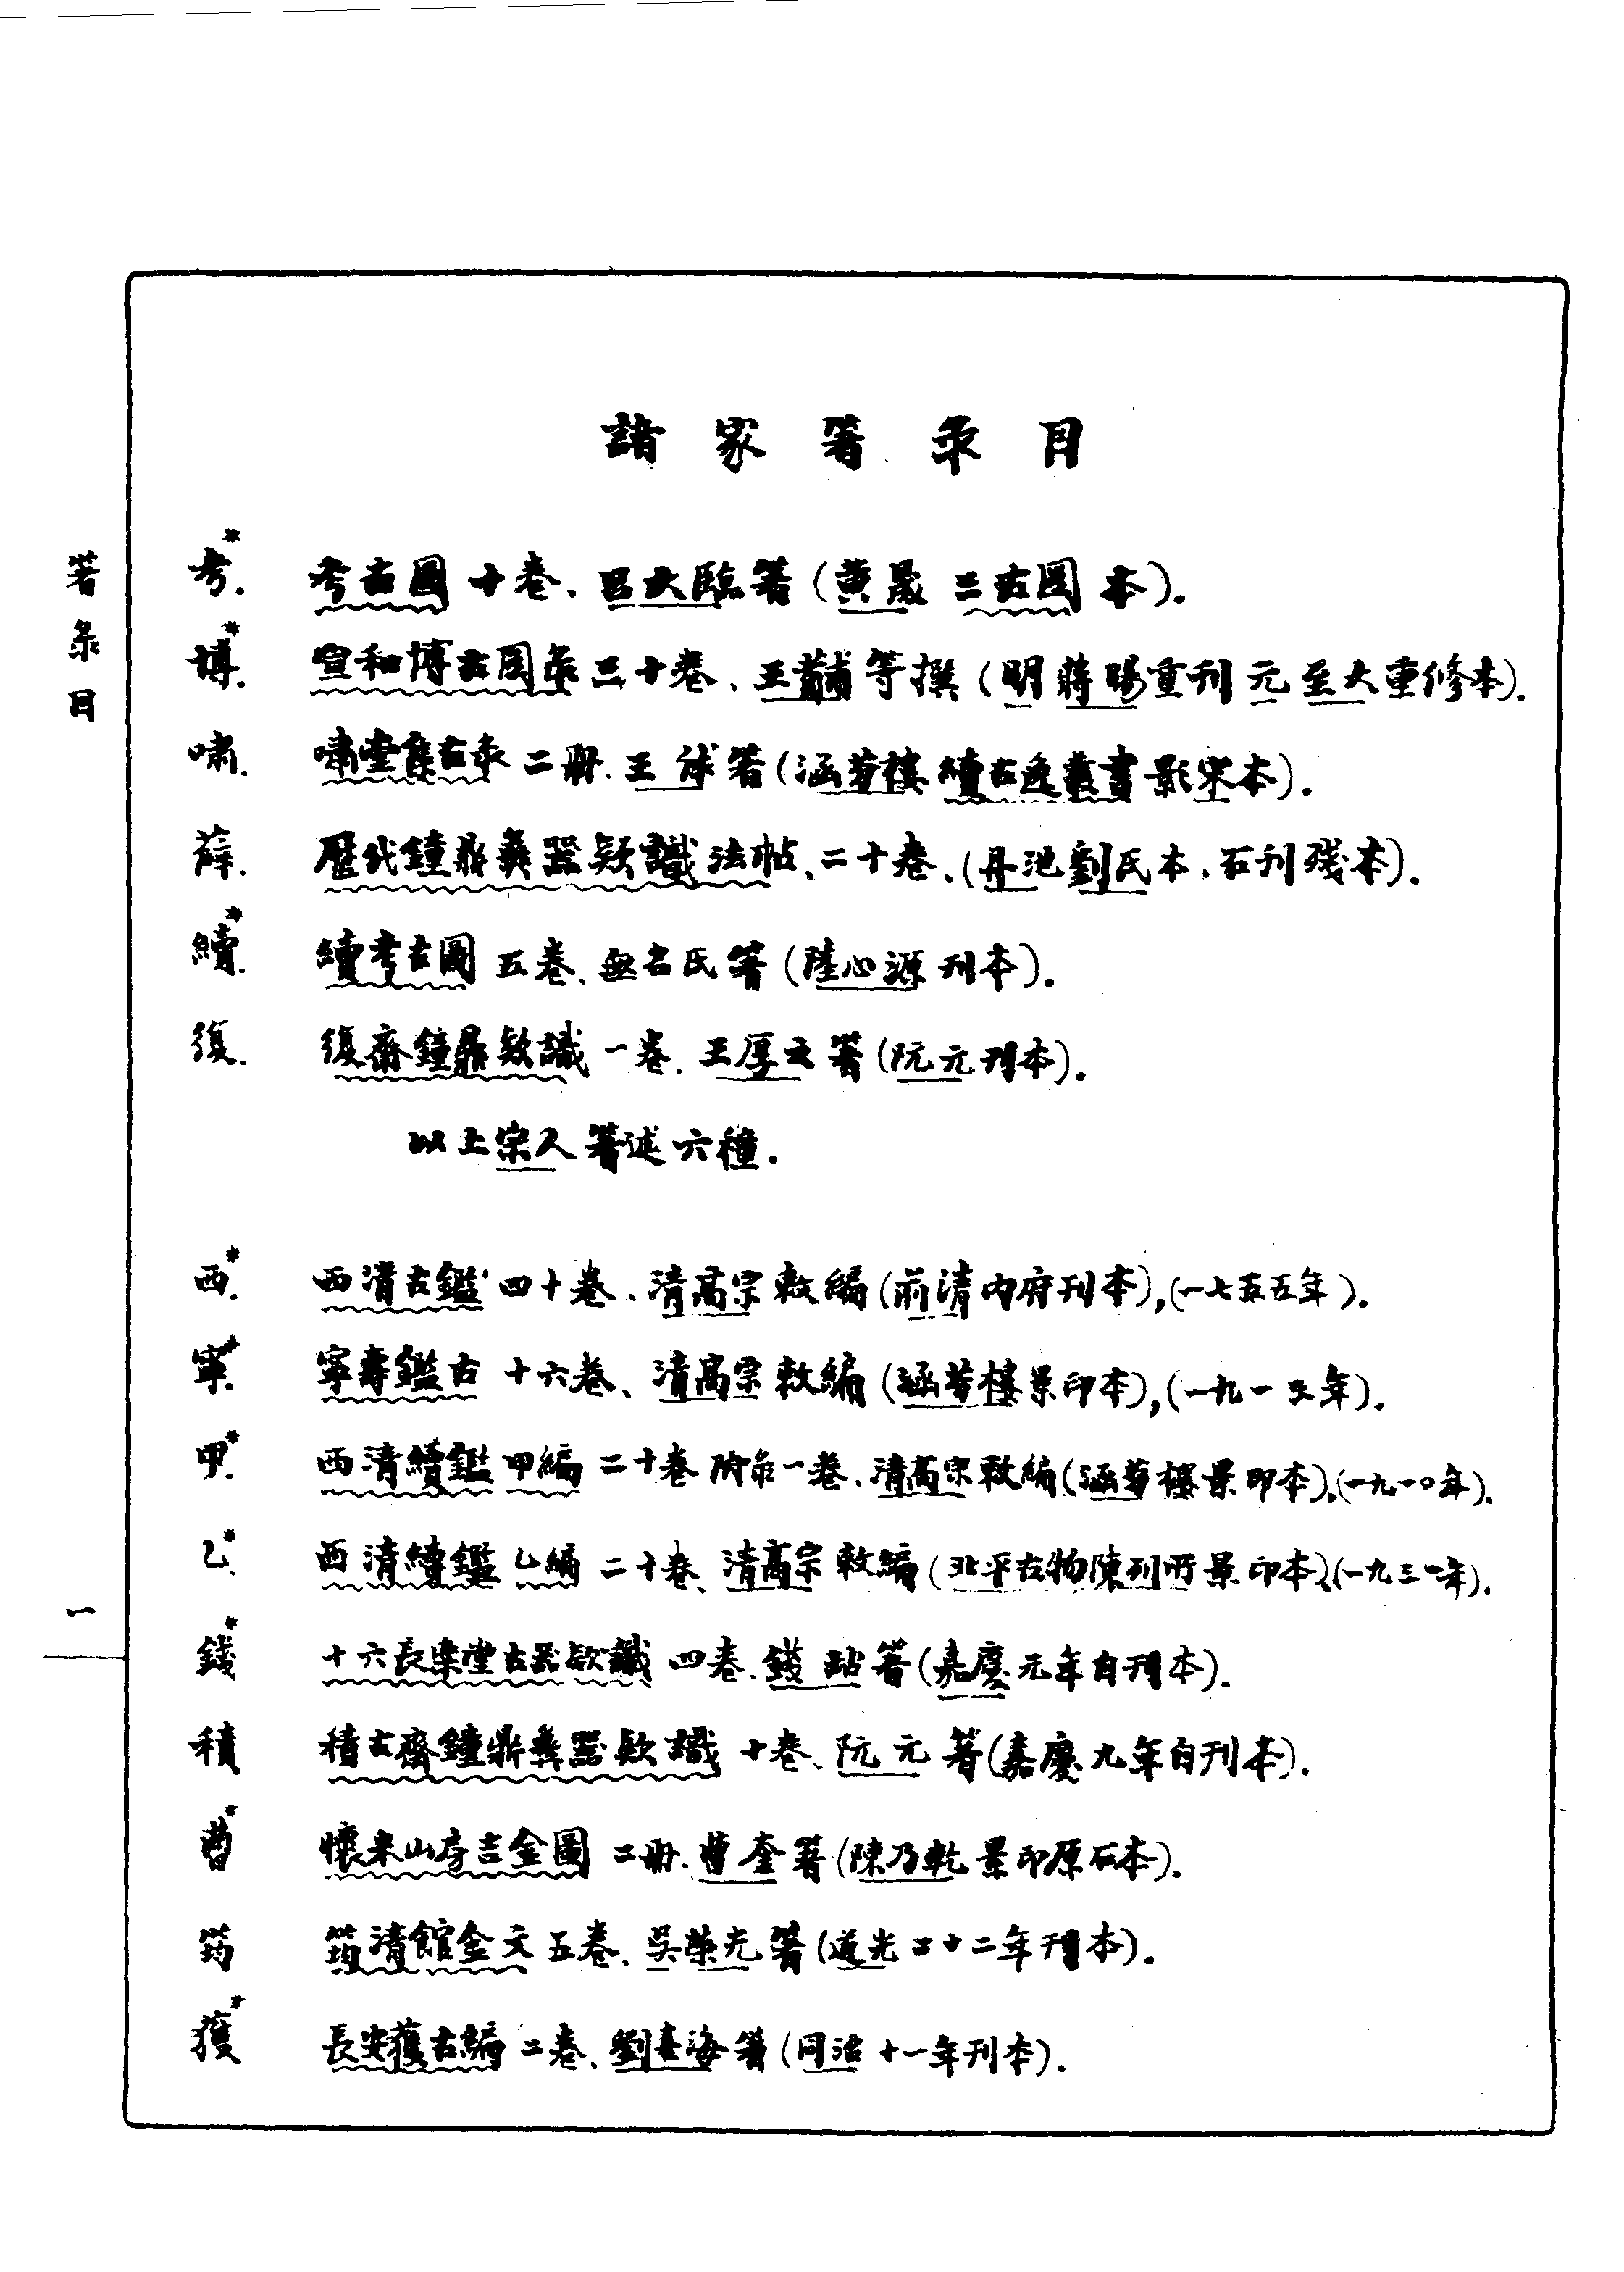 諸家箸彔目
考*. 考古圖十卷、呂大臨箸(黃晟三古圖本).
博*. 宣和博古圖彔三十卷、王黼等撰(明蔣暘重刊元至大重修本).
嘯. 嘯堂集古彔二冊、王俅箸(涵芬樓續古逸叢書影宋本).
薛. 歷代鐘鼎彝器款識法帖、二十卷、(丹池劉氏本、石刊殘本).
續*. 續考古圖五卷、無名氏箸(陸心源刊本).
復. 復齋鐘鼎款識一卷、王厚之箸(阮元刊本).
以上宋人箸述六種.
西*. 西清古鑑四十卷、清高宗敕編(前清內府刊本),(一七五五年).
寧*. 寧壽鑑古十六卷、清高宗敕編(涵芬樓景印本),(一九一三年).
甲*. 西清續鑑甲編二十卷附彔一卷、清高宗敕編(涵芬樓景印本),(一九一〇年).
乙*. 西清續鑑乙編二十卷、清高宗敕編(北平古物陳列所景印本),(一九三一年).
錢* 十六長樂堂古器款識四卷、錢坫箸(嘉慶元年自刊本).
積 積古齋鐘鼎彝器款識十卷、阮元箸(嘉慶九年自刊本).
曹* 懷米山房吉金圖二冊、曹奎箸(陳乃乾景印原石本).
筠 筠清館金文五卷、吳榮光箸(道光二十二年刊本).
獲* 長安獲古編二卷、劉喜海箸(同治十一年刊本).
箸彔目
一